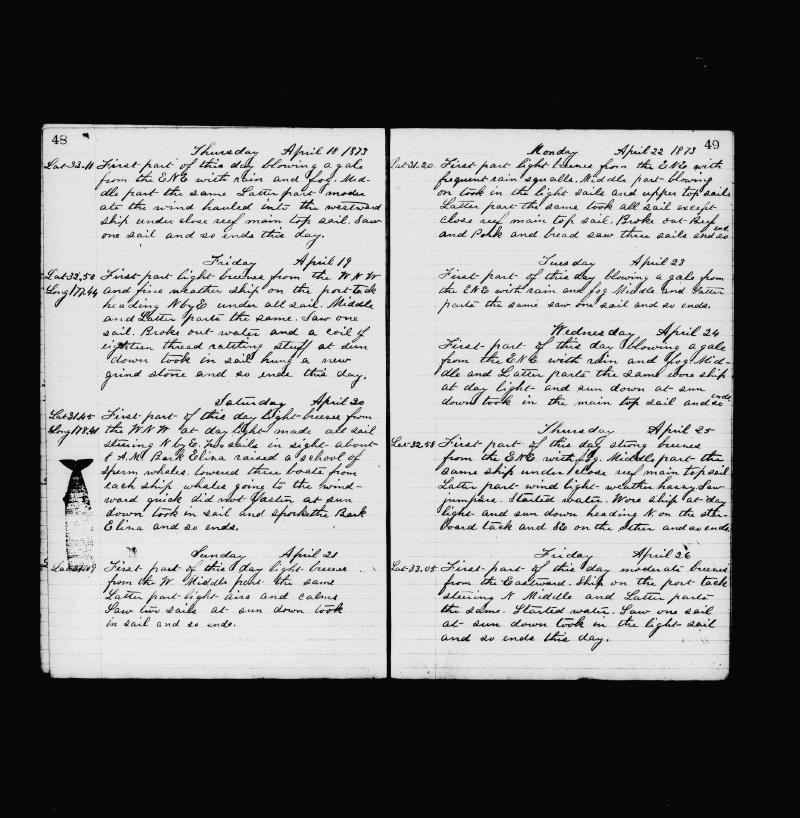 48
Thursday April 18 1873
Lat 33.11 First part of this day blowing a gale
from the ENE with rain and fog. Mid-
dle part the same Latter part moder
ate the wind hauled into the westward
ship under close reef main top sail. Saw
one sail and so ends this day.
Friday April 19
Lat 32.50 First part light breeses from the W N W
Long 177.44 and fine weather ship on the port tack
heading N by E under all sail. Middle
and Latter parts the same. Saw one
sail. Broke out water and a coil of
eighteen thread ratling stuff at sun
down took in sail hung a new
grind stone and so ends this day.
Saturday April 20
Lat 31.45 First part of this day light breeses from
Long 178.41 the W N W at day light made all sail
steering N by E. Two sails in sight about
8 A.M. Bark Elina raised a school of
Sperm whales. lowered three boats from
each ship whales going to the wind-
ward quick did not fasten at sun
down took in sail and spork the Bark
Elina and so ends.
Sunday April 21
First part of this day light breese
from the W. Middle part the same
Latter part light airs and calms
Saw two sails at sun down took
in sail and so ends.
49
Monday April 22 1873
Lat 31.20 First part light breeses from the ENE with
frequent rain squalls. Middle part blowing
on took in the light sails and upper top sails
Latter part the same took all sail except
close reef main top sail. Broke out Beef
and Pork and bread saw three sails and so ends
Tuesday April 23
First part of this day blowing a gale from
the ENE with rain and fog Middle and Latter
parts the same saw one sail and so ends.
Wednesday April 24
First part of this day blowing a gale
from the ENE with rain and fog. Mid-
dle and Latter parts the same wore ship
at day light and sun down at sun
down took in the main top sail and so ends
Thursday April 25
Lat 32.58 First part of this day strong breeses
from the ENE with fog. Middle part the
same ship under close reef main top sail
Latter part wind light weather hasey Saw
jumpers. Started water. Wore ship at day
light and sun down heading N. on the star-
board tack and SE on the other and so ends
Friday April 26
Lat 33.05 First part of this day moderate breeses
from the Eastward. Ship on the port tack
steering N Middle and Latter parts
the same. Started water. Saw one sail
at sun down took in the light sail
and so ends this day.